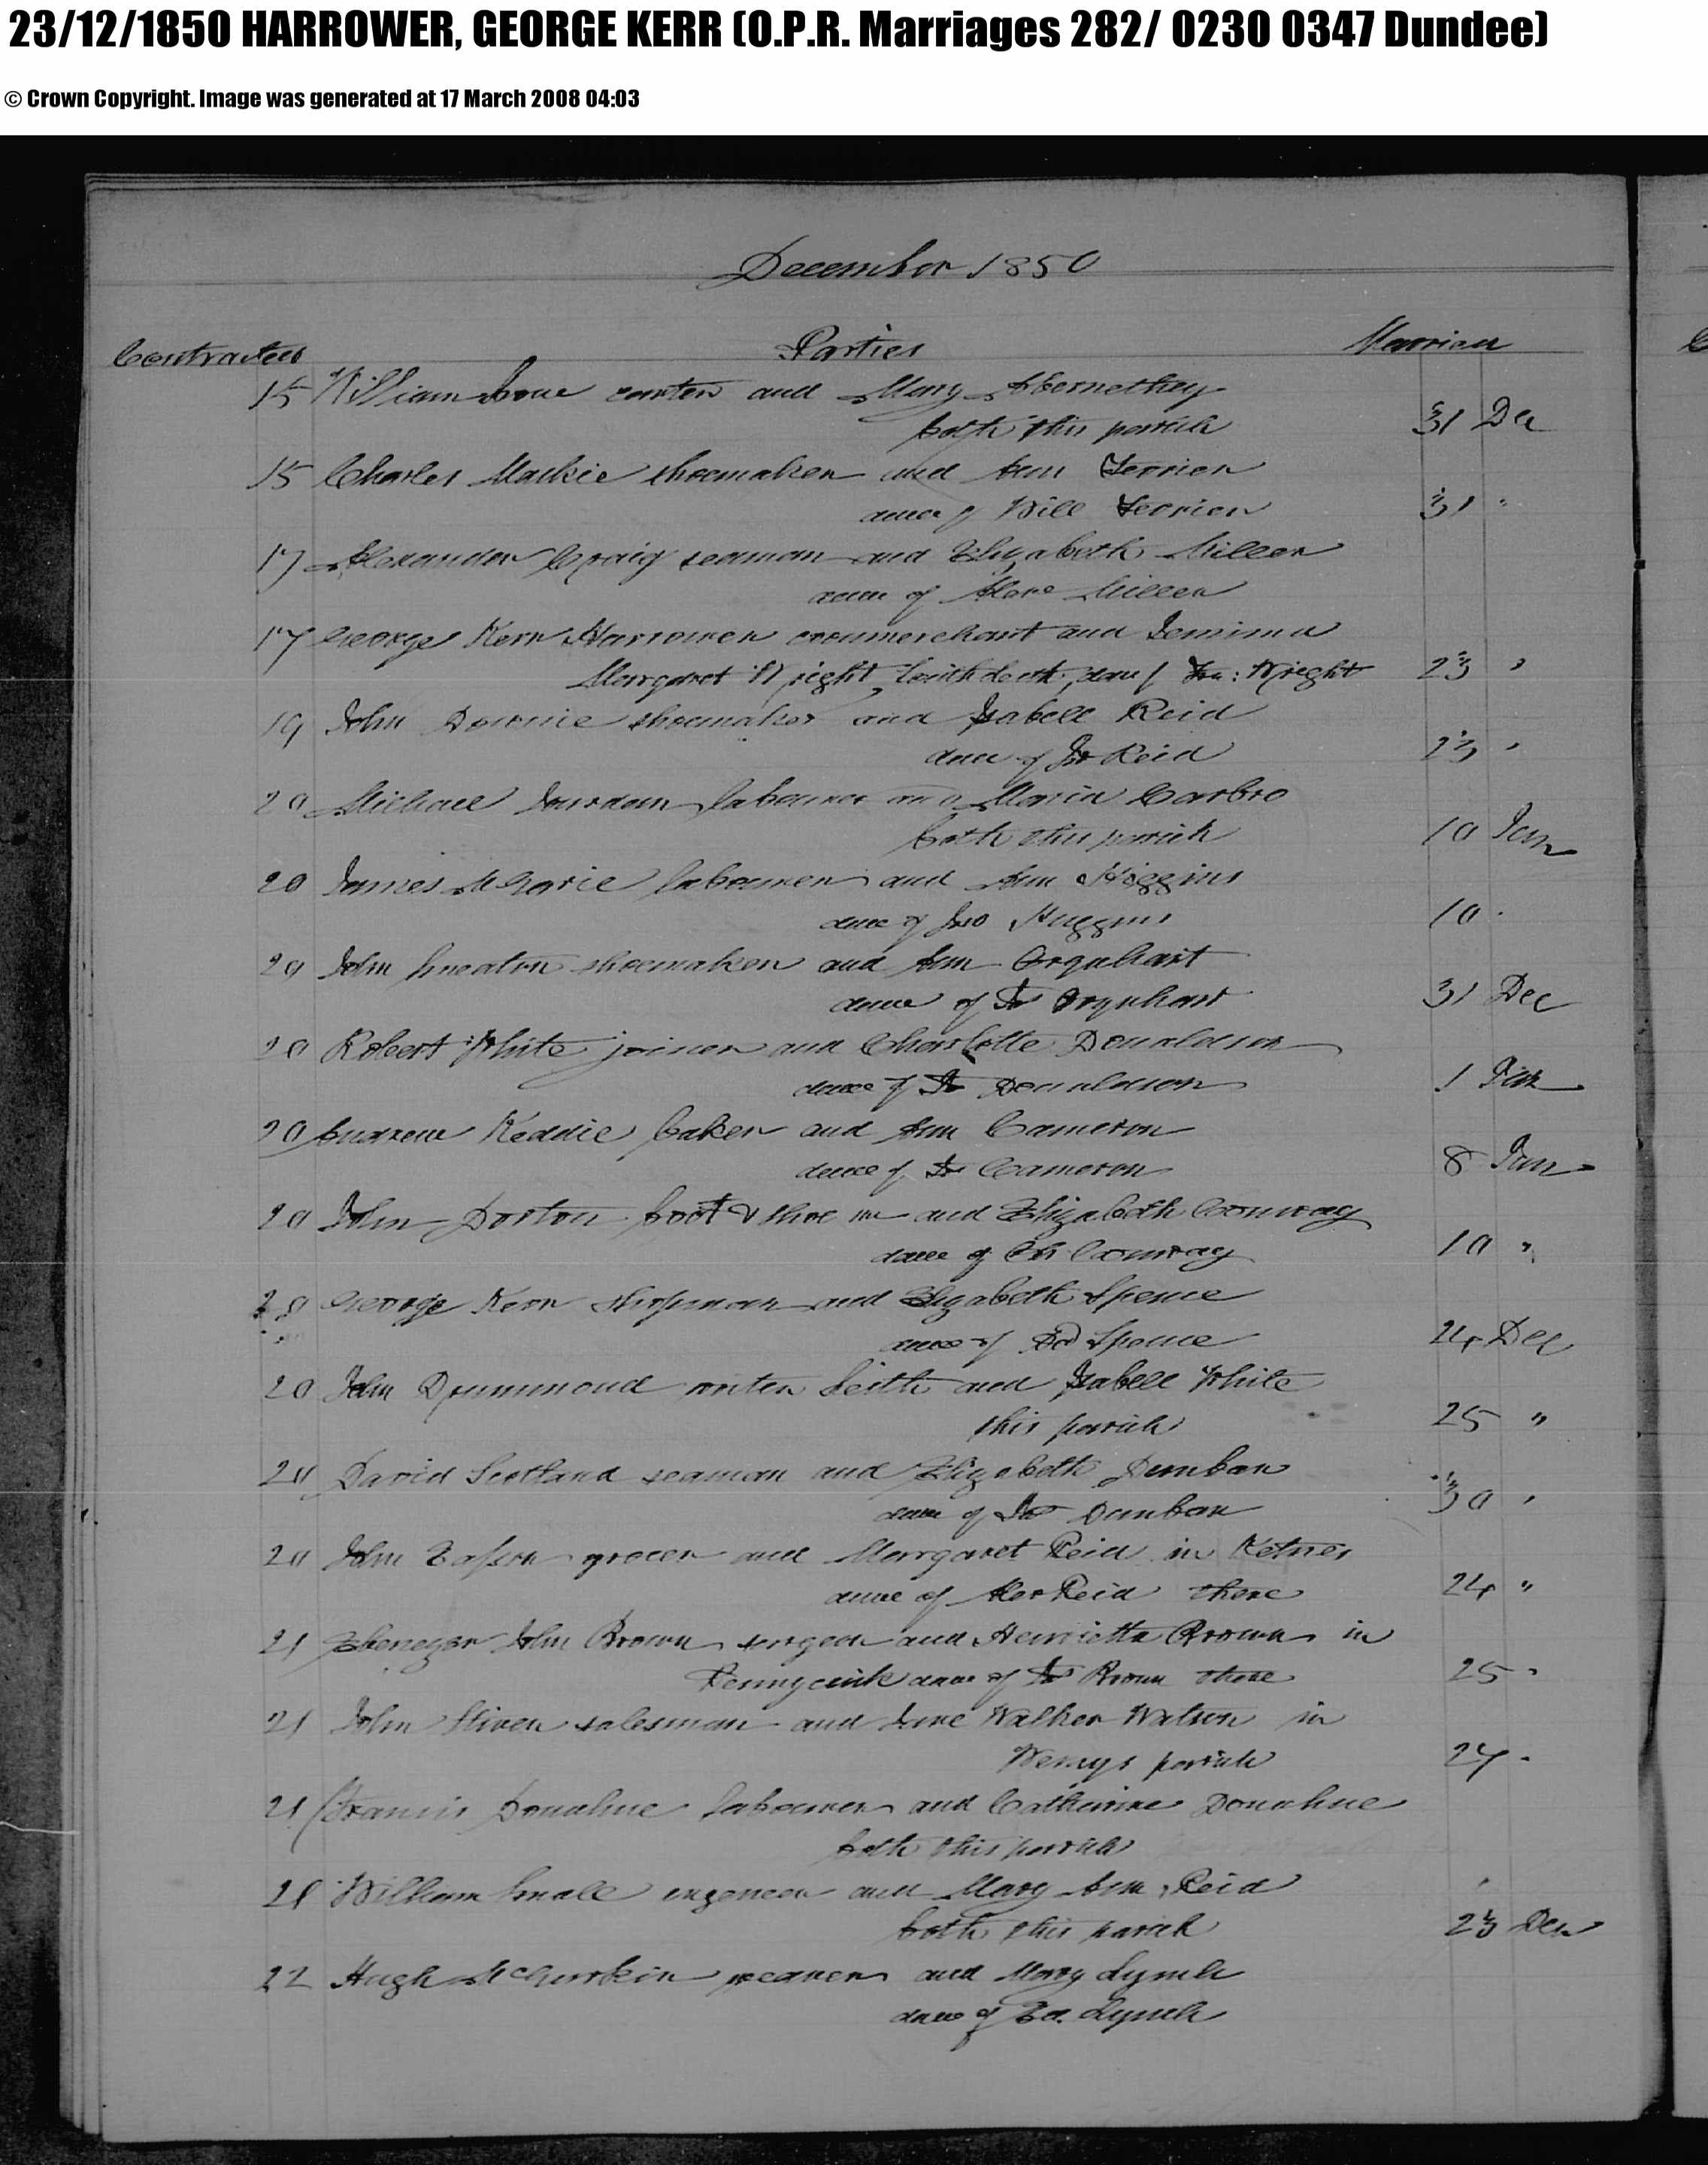 23/12/1850 HARROWER, GEORGE KERR (O.P.R. Marriages 282/ 0230 0347 Dundee)
© Crown Copyright. Image was generated at 17 March 2008 04:03
December 1850
Contracted Parties Married
15 William and Mary Abernethey
both this parish 31 Dec
15 Charles Mackie shoemaker and Ann Ferrier
daur of Will Ferrier 31 "
17 Alexander Craig seaman and Elizabeth Miller
daur of Miller
17 George Kerr Harrower and Jemima
Margaret Wright, dau / Wright 23 "
19 John Downie shoemaker and Isabell Reid
daur of Reid 23 "
20 Michael labourer and Maria Carbro
both this parish 10 Jan
20 James labourer and Ann Higgins
daur of Jno Huggins 10 "
20 John shoemaker and Ann Orquhart
daur of Orquhart 31 Dec
20 Robert White joiner and Charlotte Donaldson
daur of Donaldson 1 Jan
20 Andrew Keddie baker and Ann Cameron
daur of Cameron 8 Jan
20 John Dorton boot & shoe mr and Elizabeth Conway
daur of Conway 10 "
20 George Kerr shopman and Elizabeth Spence
daur of Dd Spence 24 Dec
20 John Drummond writer Leith and Isabell White
this parish 25 "
20 David Scotland seaman and Elizabeth Dunbar
daur of Dunbar 30 "
20 John Eason grocer and Margaret Reid in Ketnes
daur of Alex Reid there 24 "
21 Ebenezer John Brown surgeon and Henrietta Brown in
Pennycuik daur of Brown there 25 "
21 John Stiven salesman and Jane Walker Watson in
Wemys parish 27 "
21 Francis Donahue labourer and Catherine Donahue
both this parish
21 William Small engeneer and Mary Ann Reid
both this parish 23 Dec
22 Hugh McGurkin weaver and Mary Lynch
daur of Ed. Lynch